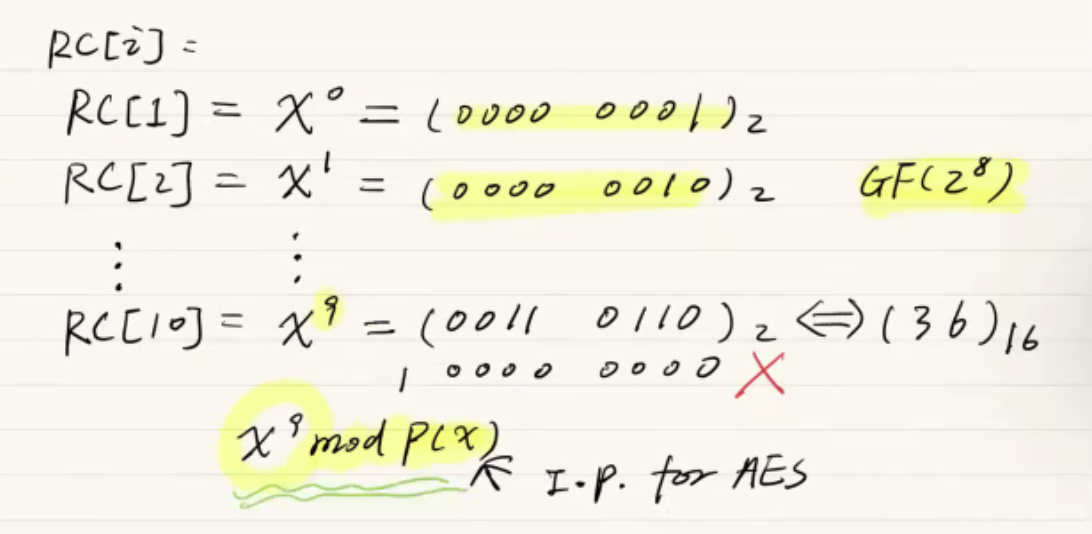 RC[i] =
RC[1] = x⁰ = (0000 0001)₂
RC[2] = x¹ = (0000 0010)₂ GF(2⁸)
⋮ ⋮
RC[10] = x⁹ = (0011 0110)₂ ⇔ (36)₁₆
1 0000 0000 X
x⁹ mod P(x)
↖ I.p. for AES